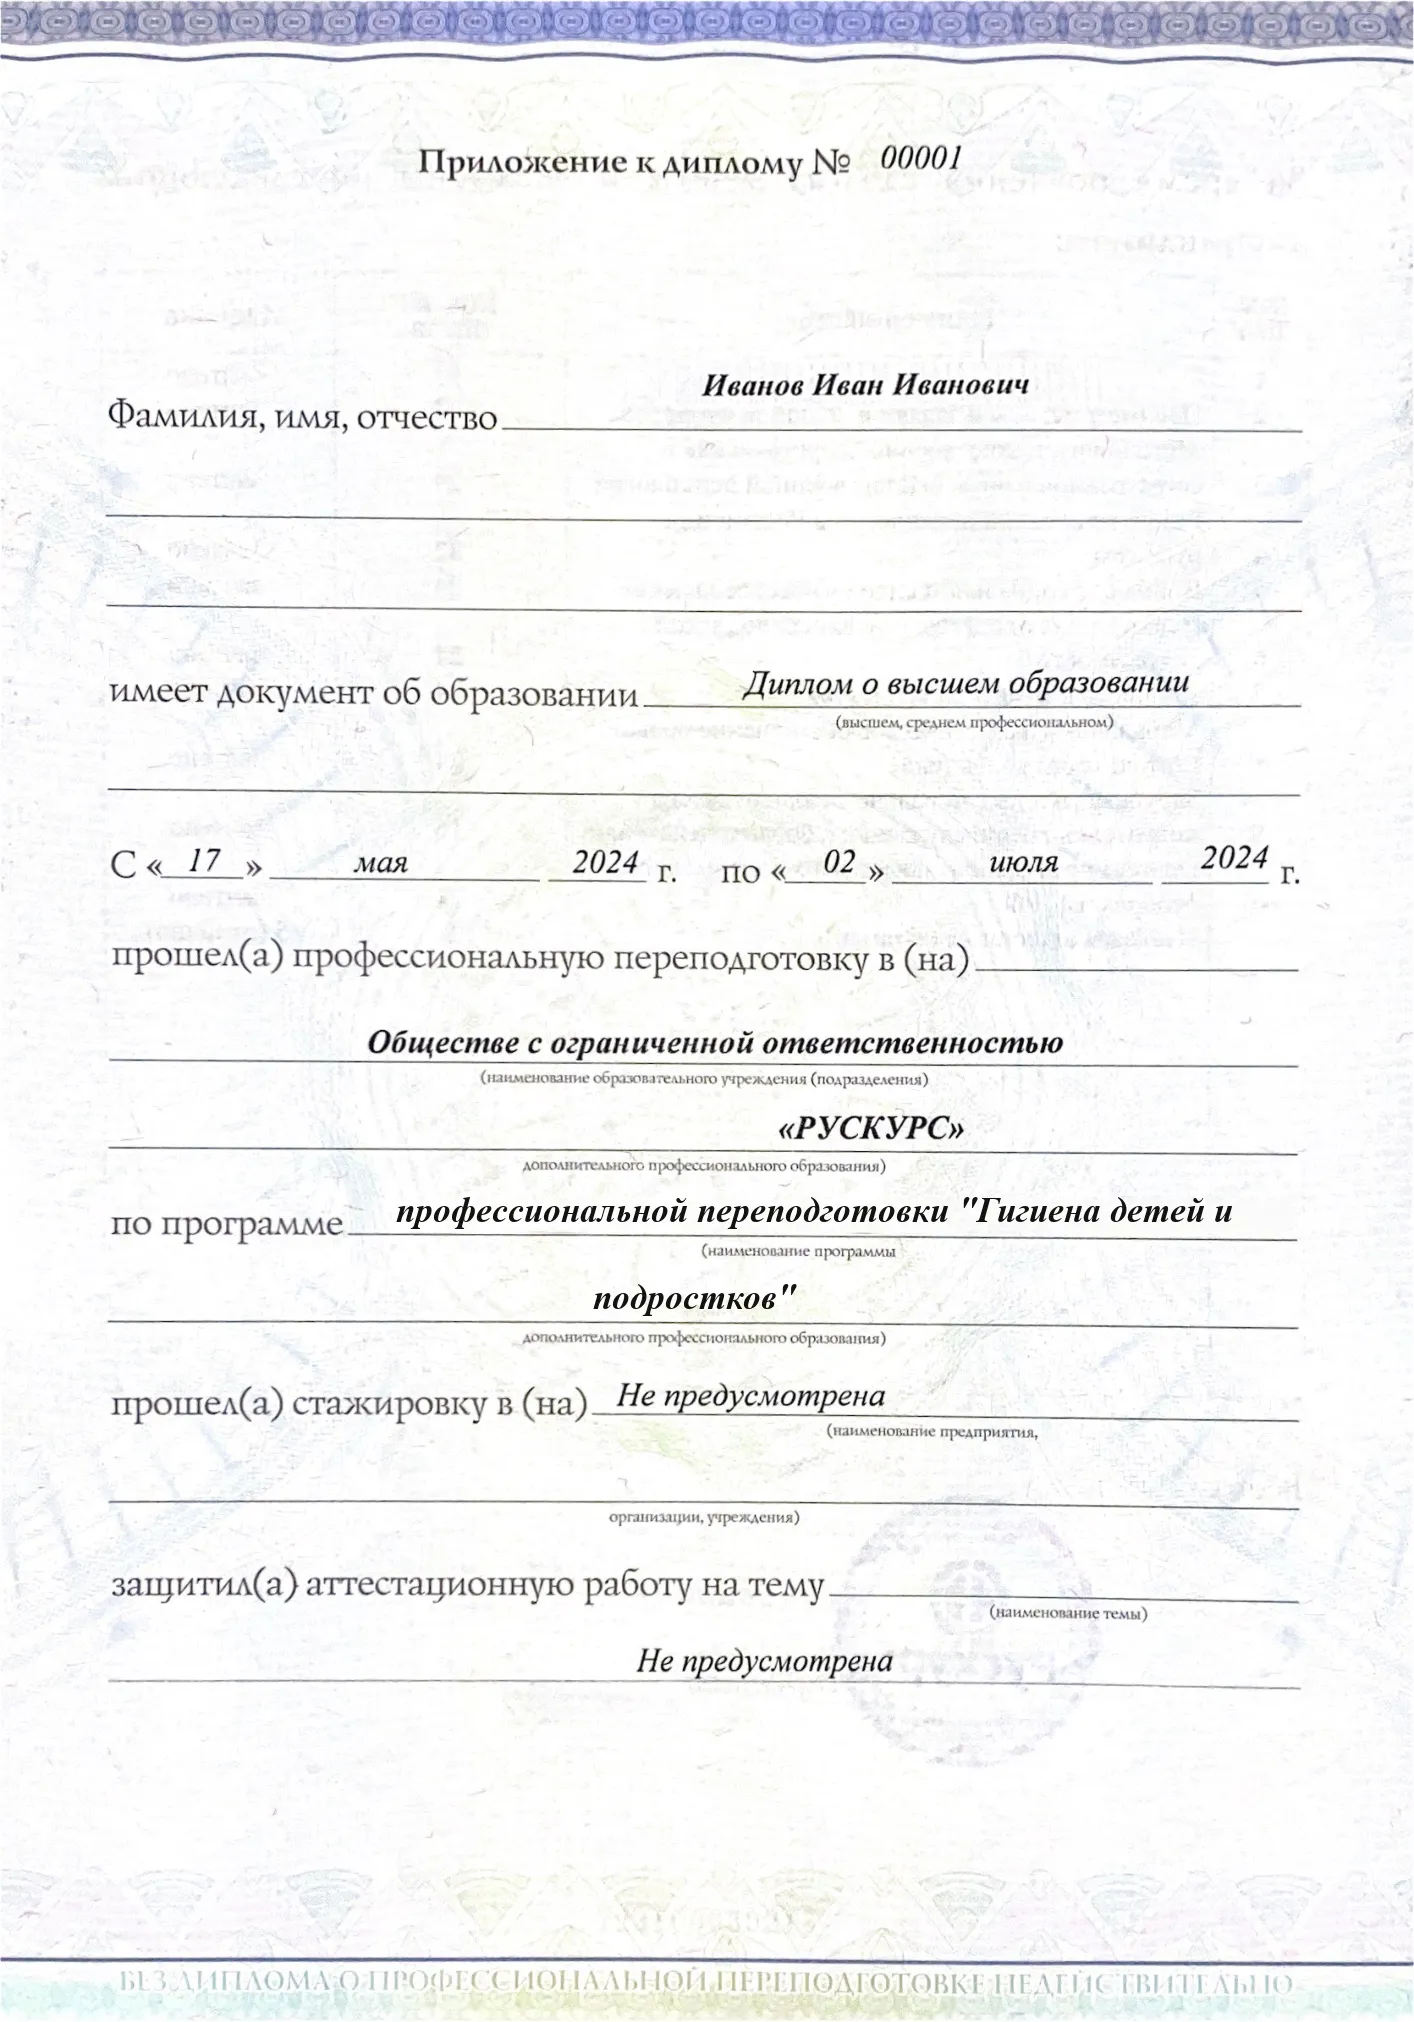 Приложение к диплому № 00001
Иванов Иван Иванович
Фамилия, имя, отчество
имеет документ об образовании Диплом о высшем образовании
(высшем, среднем профессиональном)
С « 17 » мая 2024 г. по « 02 » июля 2024 г.
прошел(а) профессиональную переподготовку в (на)
Обществе с ограниченной ответственностью
(наименование образовательного учреждения (подразделения)
«РУСКУРС»
дополнительного профессионального образования)
по программе профессиональной переподготовки "Гигиена детей и
(наименование программы
подростков"
дополнительного профессионального образования)
прошел(а) стажировку в (на) Не предусмотрена
(наименование предприятия,
организации, учреждения)
защитил(а) аттестационную работу на тему
(наименование темы)
Не предусмотрена
БЕЗ ДИПЛОМА О ПРОФЕССИОНАЛЬНОЙ ПЕРЕПОДГОТОВКЕ НЕДЕЙСТВИТЕЛЬНО